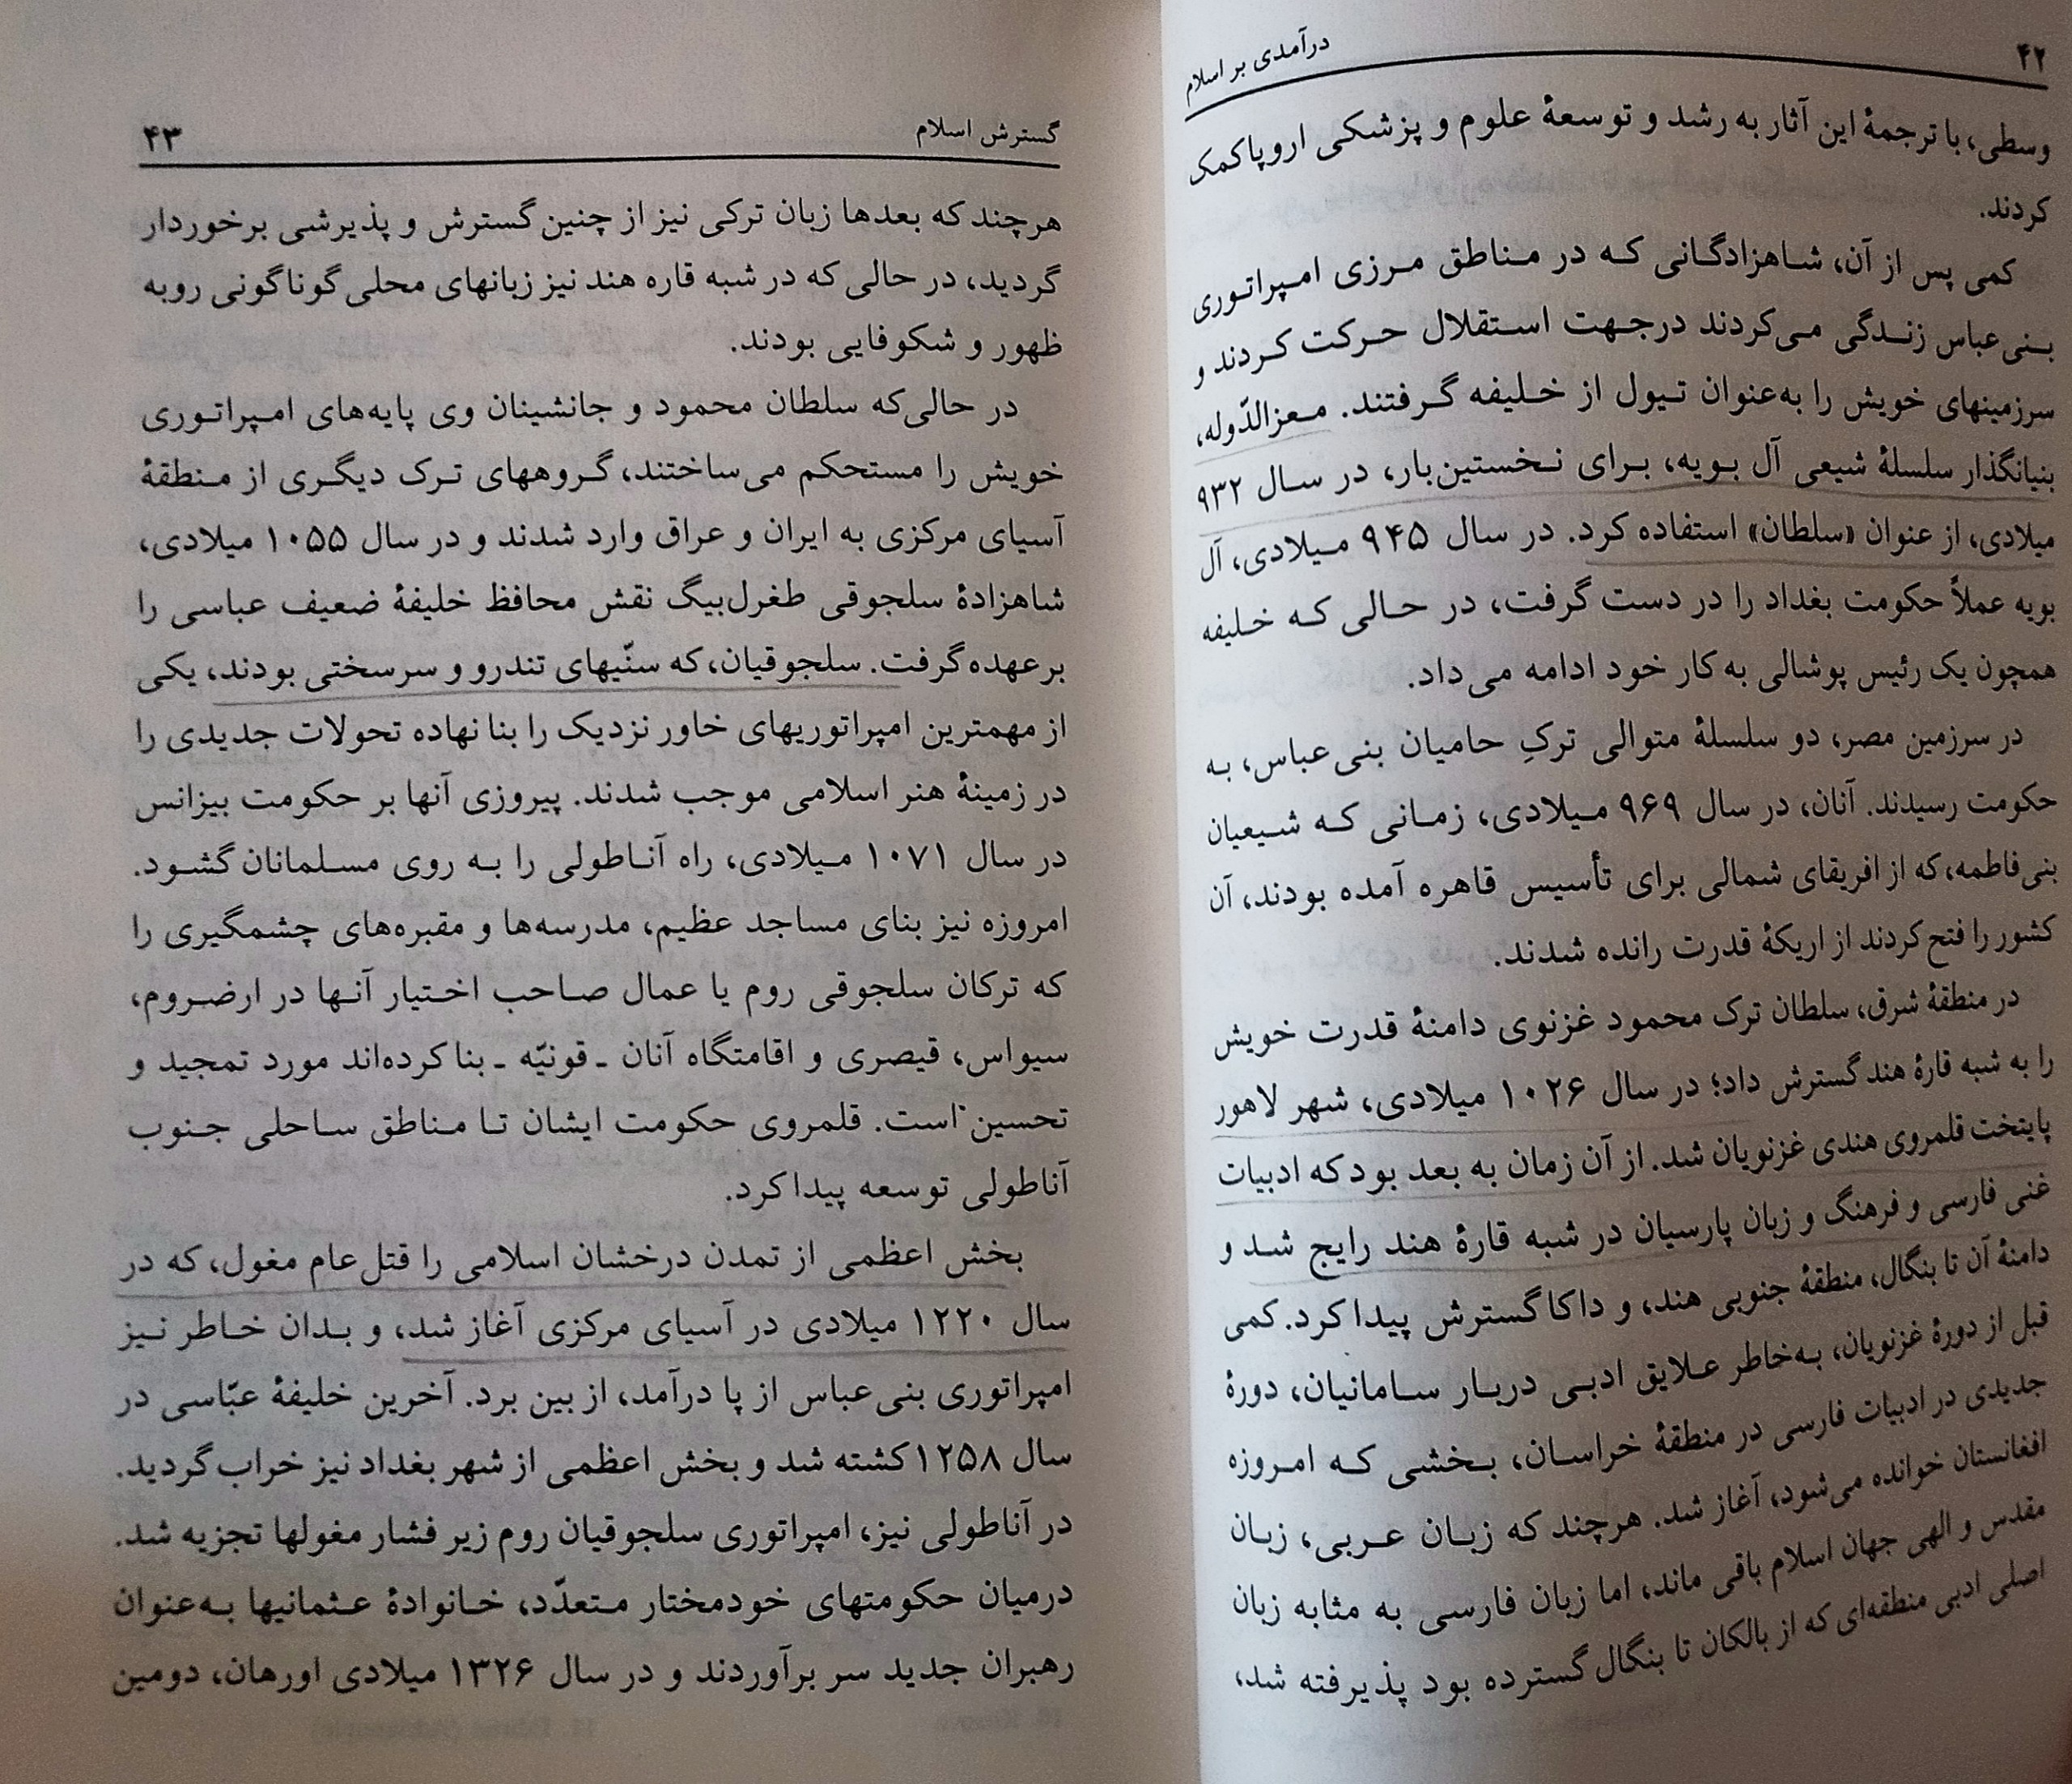 ۴۲
درآمدی بر اسلام
وسطی، با ترجمهٔ این آثار به رشد و توسعهٔ علوم و پزشکی اروپا کمک
کردند.
کمی پس از آن، شاهزادگانی که در مناطق مرزی امپراتوری
بنی‌عباس زندگی می‌کردند درجهت استقلال حرکت کردند و
سرزمینهای خویش را به‌عنوان تیول از خلیفه گرفتند. معزالدّوله،
بنیانگذار سلسلهٔ شیعی آل بویه، برای نخستین‌بار، در سال ۹۳۲
میلادی، از عنوان «سلطان» استفاده کرد. در سال ۹۴۵ میلادی، آل
بویه عملاً حکومت بغداد را در دست گرفت، در حالی که خلیفه
همچون یک رئیس پوشالی به کار خود ادامه می‌داد.
در سرزمین مصر، دو سلسلهٔ متوالی ترکِ حامیان بنی‌عباس، به
حکومت رسیدند. آنان، در سال ۹۶۹ میلادی، زمانی که شیعیان
بنی‌فاطمه، که از افریقای شمالی برای تأسیس قاهره آمده بودند، آن
کشور را فتح کردند از اریکهٔ قدرت رانده شدند.
در منطقهٔ شرق، سلطان ترک محمود غزنوی دامنهٔ قدرت خویش
را به شبه قارهٔ هند گسترش داد؛ در سال ۱۰۲۶ میلادی، شهر لاهور
پایتخت قلمروی هندی غزنویان شد. از آن زمان به بعد بود که ادبیات
غنی فارسی و فرهنگ و زبان پارسیان در شبه قارهٔ هند رایج شد و
دامنهٔ آن تا بنگال، منطقهٔ جنوبی هند، و داکا گسترش پیدا کرد. کمی
قبل از دورهٔ غزنویان، به‌خاطر علایق ادبی دربار سامانیان، دورهٔ
جدیدی در ادبیات فارسی در منطقهٔ خراسان، بخشی که امروزه
افغانستان خوانده می‌شود، آغاز شد. هرچند که زبان عربی، زبان
مقدس و الهی جهان اسلام باقی ماند، اما زبان فارسی به مثابه زبان
اصلی ادبی منطقه‌ای که از بالکان تا بنگال گسترده بود پذیرفته شد،
گسترش اسلام
۴۳
هرچند که بعدها زبان ترکی نیز از چنین گسترش و پذیرشی برخوردار
گردید، در حالی که در شبه قاره هند نیز زبانهای محلی گوناگونی روبه
ظهور و شکوفایی بودند.
در حالی‌که سلطان محمود و جانشینان وی پایه‌های امپراتوری
خویش را مستحکم می‌ساختند، گروههای ترک دیگری از منطقهٔ
آسیای مرکزی به ایران و عراق وارد شدند و در سال ۱۰۵۵ میلادی،
شاهزادهٔ سلجوقی طغرل‌بیگ نقش محافظ خلیفهٔ ضعیف عباسی را
برعهده گرفت. سلجوقیان، که سنّیهای تندرو و سرسختی بودند، یکی
از مهمترین امپراتوریهای خاور نزدیک را بنا نهاده تحولات جدیدی را
در زمینهٔ هنر اسلامی موجب شدند. پیروزی آنها بر حکومت بیزانس
در سال ۱۰۷۱ میلادی، راه آناطولی را به روی مسلمانان گشود.
امروزه نیز بنای مساجد عظیم، مدرسه‌ها و مقبره‌های چشمگیری را
که ترکان سلجوقی روم یا عمال صاحب اختیار آنها در ارضروم،
سیواس، قیصری و اقامتگاه آنان ـ قونیّه ـ بنا کرده‌اند مورد تمجید و
تحسین است. قلمروی حکومت ایشان تا مناطق ساحلی جنوب
آناطولی توسعه پیدا کرد.
بخش اعظمی از تمدن درخشان اسلامی را قتل‌عام مغول، که در
سال ۱۲۲۰ میلادی در آسیای مرکزی آغاز شد، و بدان خاطر نیز
امپراتوری بنی‌عباس از پا درآمد، از بین برد. آخرین خلیفهٔ عبّاسی در
سال ۱۲۵۸ کشته شد و بخش اعظمی از شهر بغداد نیز خراب گردید.
در آناطولی نیز، امپراتوری سلجوقیان روم زیر فشار مغولها تجزیه شد.
درمیان حکومتهای خودمختار متعدّد، خانوادهٔ عثمانیها به‌عنوان
رهبران جدید سر برآوردند و در سال ۱۳۲۶ میلادی اورهان، دومین